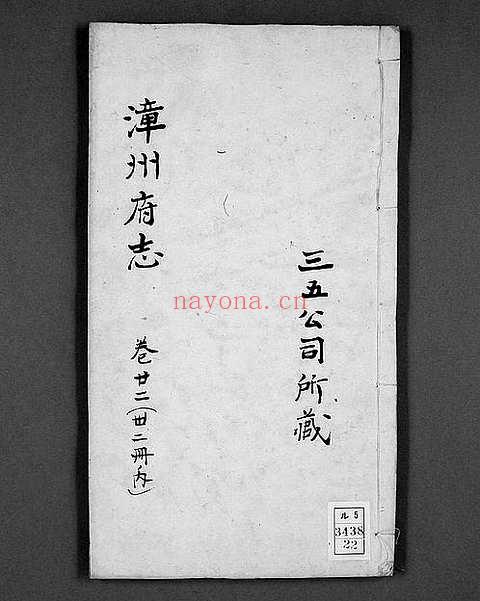 漳州府志
卷廿二(廿二冊内)
三五公司所藏
nayona.cn
ル 5
3438
22